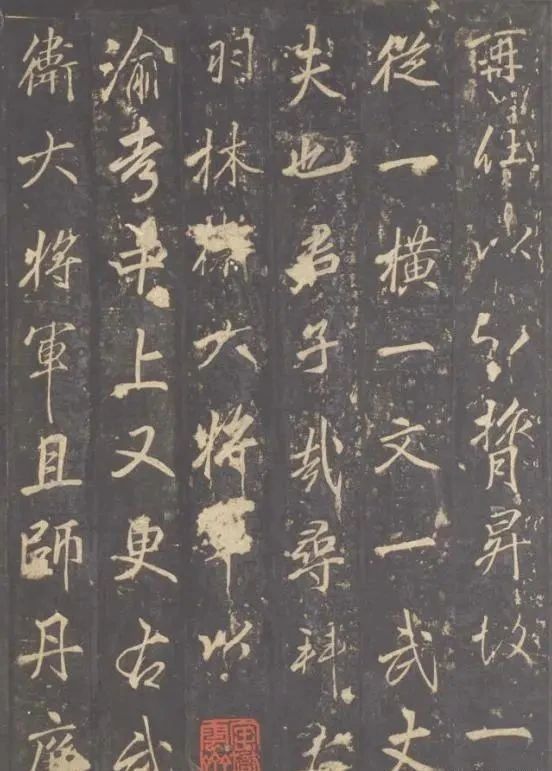 再任以膂昇故一
從一橫一文一武丈
夫也君子哉尋拜右
羽林衛大將軍以
渝考上又更右武
衛大將軍且師丹廢